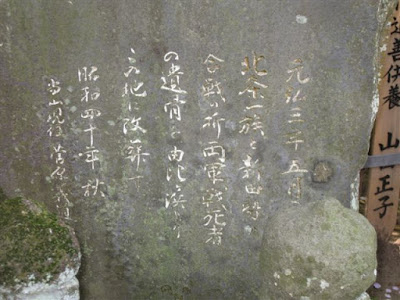 元弘三年五月
北条一族と新田勢
合戦の折両軍戦死者
の遺骨を由比浜より
この地に改葬す
昭和四十年秋
当山現住 菅原義道
追善供養
山
正子